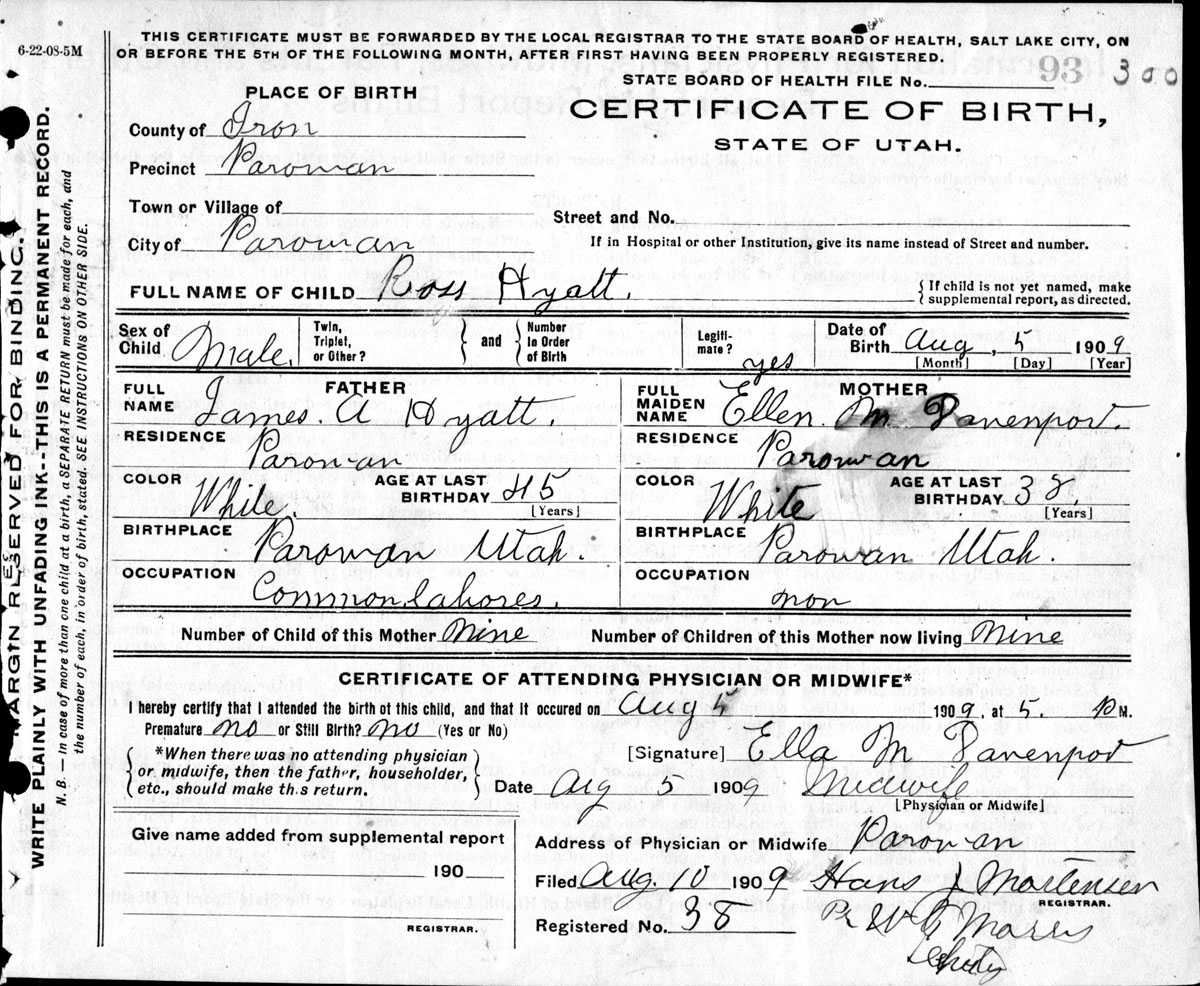 6-22-08-5M
THIS CERTIFICATE MUST BE FORWARDED BY THE LOCAL REGISTRAR TO THE STATE BOARD OF HEALTH, SALT LAKE CITY, ON
OR BEFORE THE 5TH OF THE FOLLOWING MONTH, AFTER FIRST HAVING BEEN PROPERLY REGISTERED.
STATE BOARD OF HEALTH FILE No. 93 300
PLACE OF BIRTH
CERTIFICATE OF BIRTH,
STATE OF UTAH.
County of Iron
Precinct Parowan
Town or Village of
Street and No.
City of Parowan
If in Hospital or other Institution, give its name instead of Street and number.
FULL NAME OF CHILD Ross Hyatt.
{ If child is not yet named, make
supplemental report, as directed.
Sex of Child Male.
Twin, Triplet, or Other? } and { Number in Order of Birth
Legiti- mate? yes
Date of Birth Aug, 5 1909
[Month] [Day] [Year]
FATHER
FULL NAME James. A Hyatt.
RESIDENCE Parowan
COLOR White.
AGE AT LAST BIRTHDAY 45
[Years]
BIRTHPLACE Parowan Utah
OCCUPATION Common labores.
MOTHER
FULL MAIDEN NAME Ellen. M. Davenport.
RESIDENCE Parowan
COLOR White
AGE AT LAST BIRTHDAY. 38.
[Years]
BIRTHPLACE Parowan Utah.
OCCUPATION non
Number of Child of this Mother Nine
Number of Children of this Mother now living Nine
CERTIFICATE OF ATTENDING PHYSICIAN OR MIDWIFE*
I hereby certify that I attended the birth of this child, and that it occured on Aug 5 1909, at 5. P M.
Premature no or Still Birth? no (Yes or No)
{ *When there was no attending physician
or midwife, then the father, householder,
etc., should make th.s return. }
[Signature] Ella M Davenport
Date Aug 5 1909 Midwife
[Physician or Midwife]
Give name added from supplemental report
190
REGISTRAR.
Address of Physician or Midwife Parowan
Filed Aug. 10 1909 Hans J Mortensen
REGISTRAR.
Registered No. 38
Pr W G Marris
Deputy
MARGIN RESERVED FOR BINDING.
WRITE PLAINLY WITH UNFADING INK--THIS IS A PERMANENT RECORD.
N. B. — In case of more than one child at a birth, a SEPARATE RETURN must be made for each, and
the number of each, in order of birth, stated. SEE INSTRUCTIONS ON OTHER SIDE.